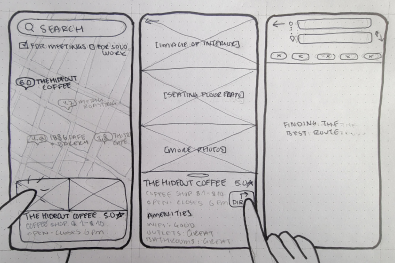 SEARCH
FOR MEETINGS FOR SOLO WORK
5.0 THE HIDEOUT
COFFEE
THE HIDEOUT COFFEE 5.0
COFFEE SHOP
OPEN - CLOSES 6 PM
[IMAGE OF INTERIOR]
[SEATING FLOOR PLAN]
[MORE PHOTOS]
THE HIDEOUT COFFEE 5.0
COFFEE SHOP
OPEN - CLOSES 6 PM
AMENITIES
WIFI - GOOD
OUTLETS - GREAT
BATHROOMS - GREAT
DIR
FINDING THE
BEST ROUTE.....